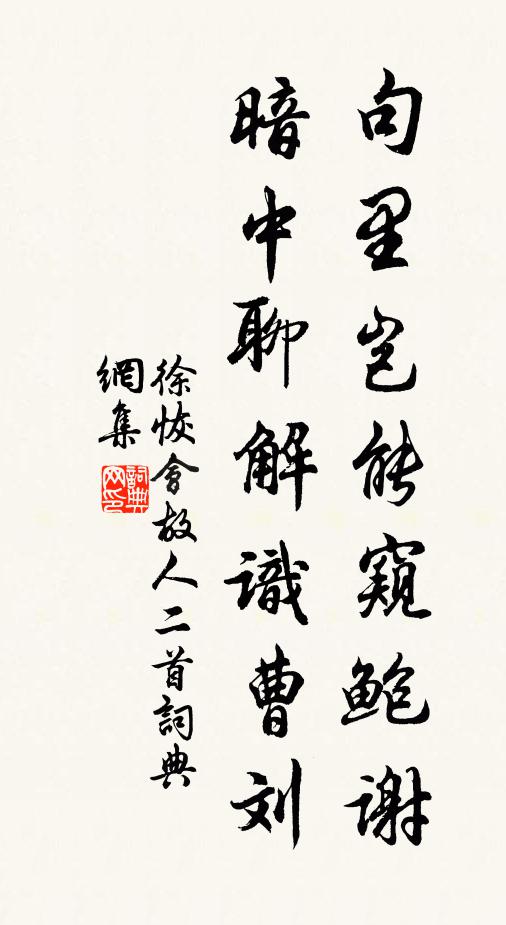 句里岂能窥鲍谢
暗中聊解識曹刘
徐恢會故人二首詞典
網集
詞典网印